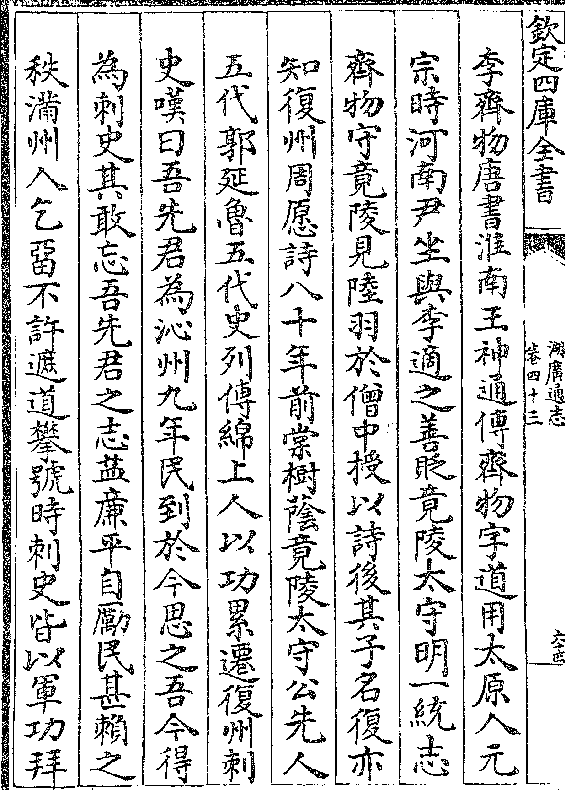 欽定四庫全書
湖廣通志
卷四十三
李齊物唐書淮南王神通傳齊物字道用太原人元
宗時河南尹坐與李適之善貶竟陵太守明一統志
齊物守竟陵見陸羽於僧中授以詩後其子名復亦
知復州周愿詩八十年前棠樹蔭竟陵太守公先人
五代郭延魯五代史列傳綿上人以功累遷復州刺
史嘆曰吾先君為沁州九年民到於今思之吾今得
為刺史其敢忘吾先君之志益廉平自勵民甚賴之
秩滿州人乞留不許遮道攀號時刺史皆以軍功拜